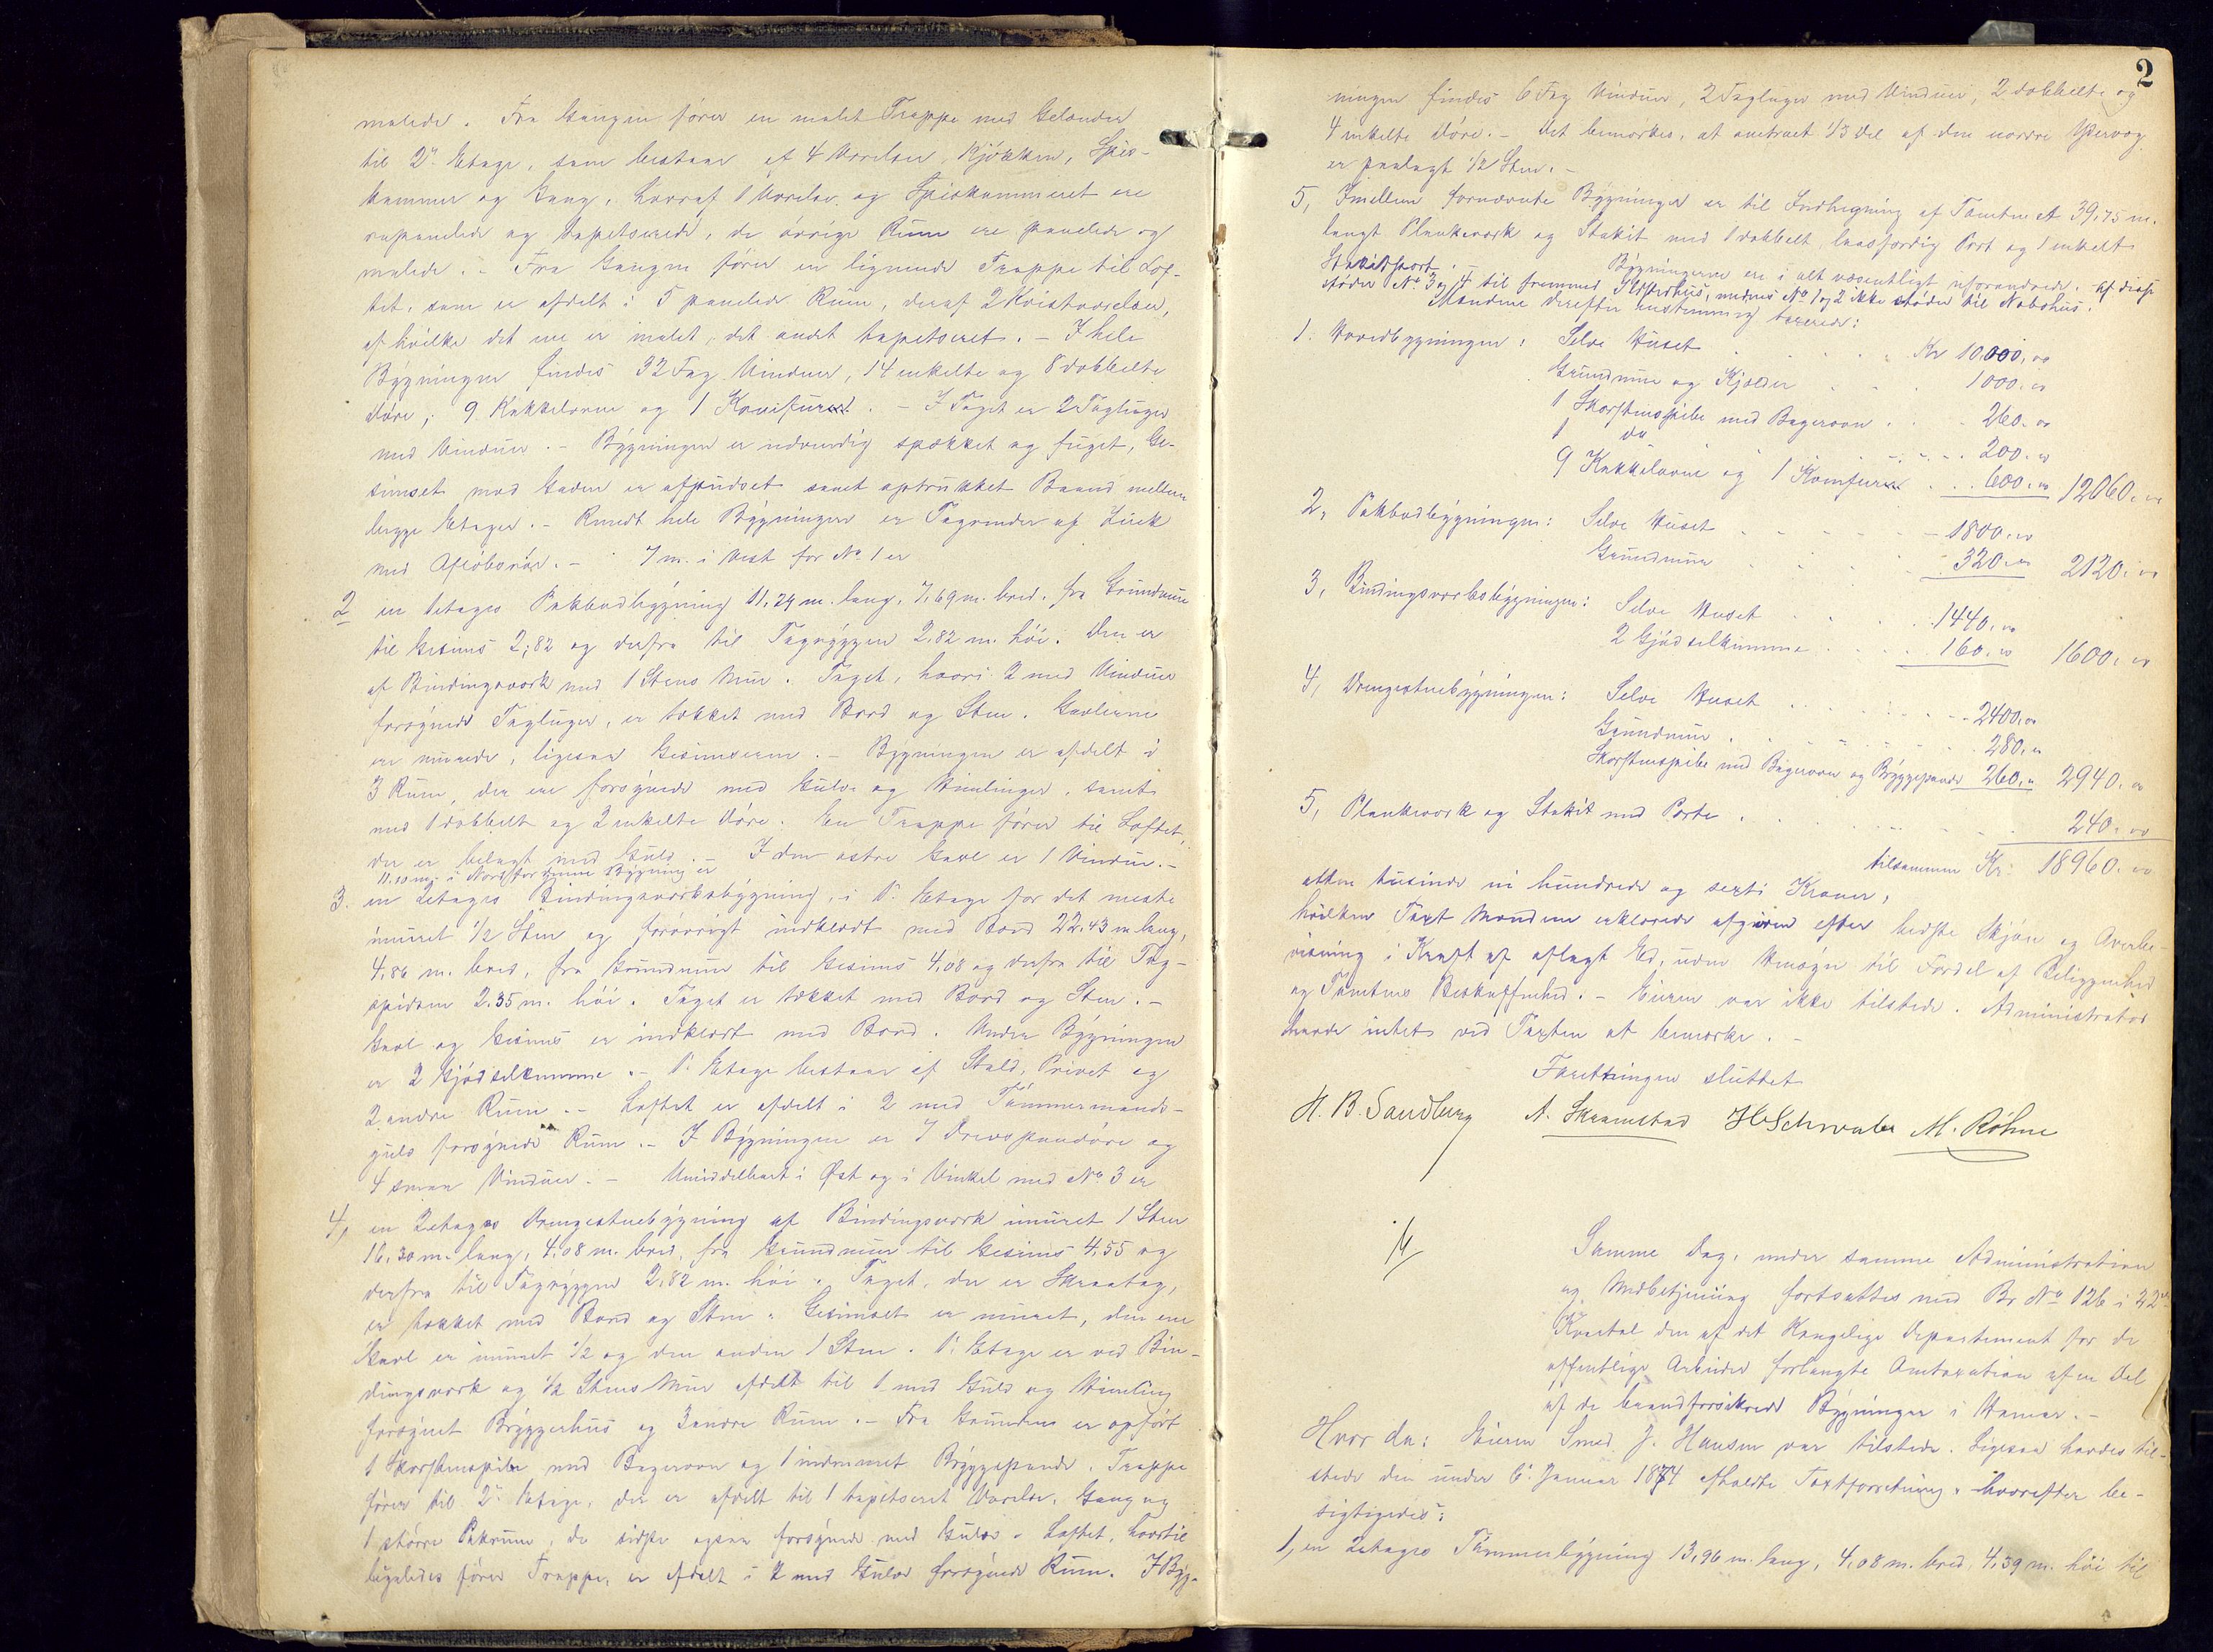 malede. Fra Gangen fører en malet Trappe med Gelænder
til 2den Etage, som bestaar af 4 Værelser, Kjøkken, Spis-
kammer og Gang, hvoraf 1 Værelse og Spiskammeret ere
upanelede og tapetserede, de øvrige Rum ere panelede og
malede. - Fra Gangen fører en lignende Trappe til Lof-
tet, som er afdelt i 5 panelede Rum, deraf 2 Kvistværelser,
af hvilke det ene er malet, det andet tapetseret. - I hele
Bygningen findes 32 Fag Vinduer, 14 enkelte og 8 dobbelte
Døre, 9 Kakkelovne og 1 Komfur. - I Taget er 2 Tagluger
med Vinduer. - Bygningen er udvendig spækket og fuget, Ge-
simset mod Gaden er afpudset samt optrukket Baand mellem
begge Etager. - Rundt hele Bygningen er Tagrender af Zink
med Afløbsrør. - 7 m. i Vest for No 1 er
2 en Etages Pakbodbygning 11,24 m. lang, 7,69 m. bred, fra Grundmur
til Gesims 2,82 og derfra til Tagryggen 2,82 m. høi. Den er
af Bindingsværk med 1 Stens Mur. Taget, hvori 2 med Vinduer
forsynede Tagluger, er tækket med Bord og Sten. Gavlerne
ere murede, ligesaa Gesimserne. - Bygningen er afdelt i
3 Rum, der ere forsynede med Gulve og Himlinger, samt
med 1 dobbelt og 2 enkelte Døre. En Trappe fører til Loftet,
der er belagt med Gulv. - I den østre Gavl er 1 Vindue. -
11.10 m. i Nord for denne Bygning er
3. en 2etages Bindingsværksbygning, i 1ste Etage for det meste
muret 1/2 Sten og forøvrigt indklædt med Bord 22,43 m lang,
4,86 m. bred, fra Grundmur til Gesims 4,08 og derfra til Tag-
spidsen 2.35 m. høi. Taget er tækket med Bord og Sten. -
Gavl og Gesims er indklædt med Bord. Under Bygningen
er 2 Gjødselkumme. - 1ste Etage bestaar af Stald, Privet og
2 andre Rum. - Loftet er afdelt i 2 med Tømmermands-
gulv forsynede Rum. - I Bygningen er 7 Drevspandøre og
4 smaa Vinduer. - Umiddelbart i Øst og i Vinkel med No 3 er
4, en 2etages Drengestuebygning af Bindingsværk muret 1 Sten
16,30 m. lang, 4.08 m. bred, fra Grundmur til Gesims 4,55 og
derfra til Tagryggen 2,82 m. høi. Taget, der er Skraatag,
er tækket med Bord og Sten. Gesimset er muret, den ene
Gavl er muret 1/2 og den anden 1 Sten. 1ste Etage er ved Bin-
dingsværk og 1/2 Stens Mur afdelt til 1 med Gulv og Himling
forsynet Bryggerhus og 3 andre Rum. - Fra Grunden er opført
1 Skorstenspibe med Bagerovn og 1 indmuret Bryggepande. Trappe
fører til 2den Etage, der er afdelt til 1 tapetseret Værelse, Gang og
1 større Pakrum, de sidste ogsaa forsynede med Gulv. Loftet, hvortil
ligeledes fører Trappe, er afdelt i 2 med Gulve forsynede Rum. I Byg-
2
ningen findes 6 Fag Vinduer, 2 Tagluger med Vinduer, 2 dobbelte og
4 enkelte Døre. - Det bemærkes, at omtrent 1/3 Del af den nordre Ydervæg
er paalagt 1/2 Sten. -
5, Imellem fornævnte Bygninger er til Indhegning af Tomten et 39,75 m.
langt Plankeværk og Stakit med 1 dobbelt, laasfærdig Port og 1 enkelt
Stakitport. - Bygningerne ere i alt væsentligt uforandrede. - Af disse
støder No 3 og 4 til fremmed Ildsted­hus, medens No 1 og 2 ikke støder til Nabohus.
Mændene derefter enstemmig taxerede:
1. Hovedbygningen: Selve Huset . . . Kr 10,000,00
Grundmur og Kjælder . . . 1000,00
1 Skorstenspibe med Bagerovn . . . 260.00
1 do . . . 200.00
9 Kakkelovne og 1 Komfur . . . 600,00 12060,00
2, Pakbodbygningen: Selve Huset . . . 1800,00
Grundmur . . . 320,00 2120,00
3, Bindingsværksbygningen: Selve Huset . . . 1440,00
2 Gjødselkumme . . . 160,00 1600,00
4, Drengestuebygningen: Selve Huset . . . 2400,00
Grundmur . . . 280,00
Skorstenspibe med Bagerovn og Bryggepande 260,00 2940,00
5, Plankeværk og Stakit med Porte . . . 240,00
tilsammen Kr: 18960.00
atten tusinde ni hundrede og sexti Kroner,
hvilken Taxt Mændene erklærede afgiven efter bedste Skjøn og Overbe-
visning i Kraft af aflagt Ed, uden Hensyn til Fordel af Beliggenhed
og Tomtens Beskaffenhed. - Eieren var ikke tilstede. Administrator
havde intet ved Taxten at bemærke. -
Forretningen sluttet
H. B. Sandberg A. Skramstad H Schwabe M. Röhne
Samme Dag, under samme Administration
og Medbetjening fortsattes med Br No 126 i 22de
Kvartal den af det Kongelige Departement for de
offentlige Arbeider forlangte Omtaxation af en Del
af de brandforsikrede Bygninger i Hamar. -
Hvor da: Eieren Smed J. Hansen var tilstede. Ligesaa havdes til-
stede den under 6te Januar 1874 afholdte Taxtforretning, hvorefter be-
sigtigedes:
1, en 2etages Tømmerbygning 13,96 m. lang, 4,08 m. bred, 4,39 m. høi til